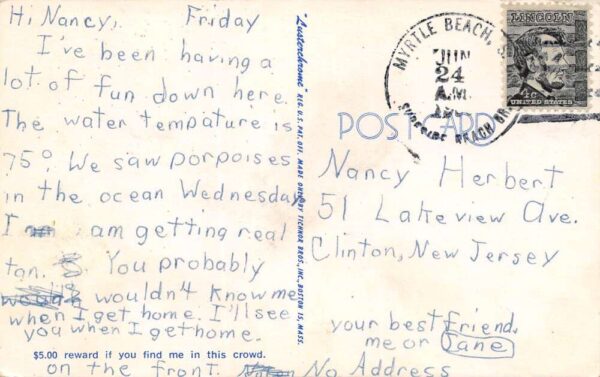 Hi Nancy, Friday
I've been having a
lot of fun down here.
The water tempature is
75°. We saw porpoises
in the ocean Wednesday
I am getting real
tan. You probably
wouldn't know me
when I get home. I'll see
you when I get home.
$5.00 reward if you find me in this crowd.
on the front. No Address
"Lusterchrome" REG. U.S. PAT. OFF. MADE ONLY BY TICHNOR BROS., INC., BOSTON 15, MASS.
MYRTLE BEACH, S.
JUN
24
A.M.
SURFSIDE BEACH BR.
LINCOLN
4¢
UNITED STATES
POST CARD
Nancy Herbert
51 Lakeview Ave.
Clinton, New Jersey
your best friend,
me or Jane